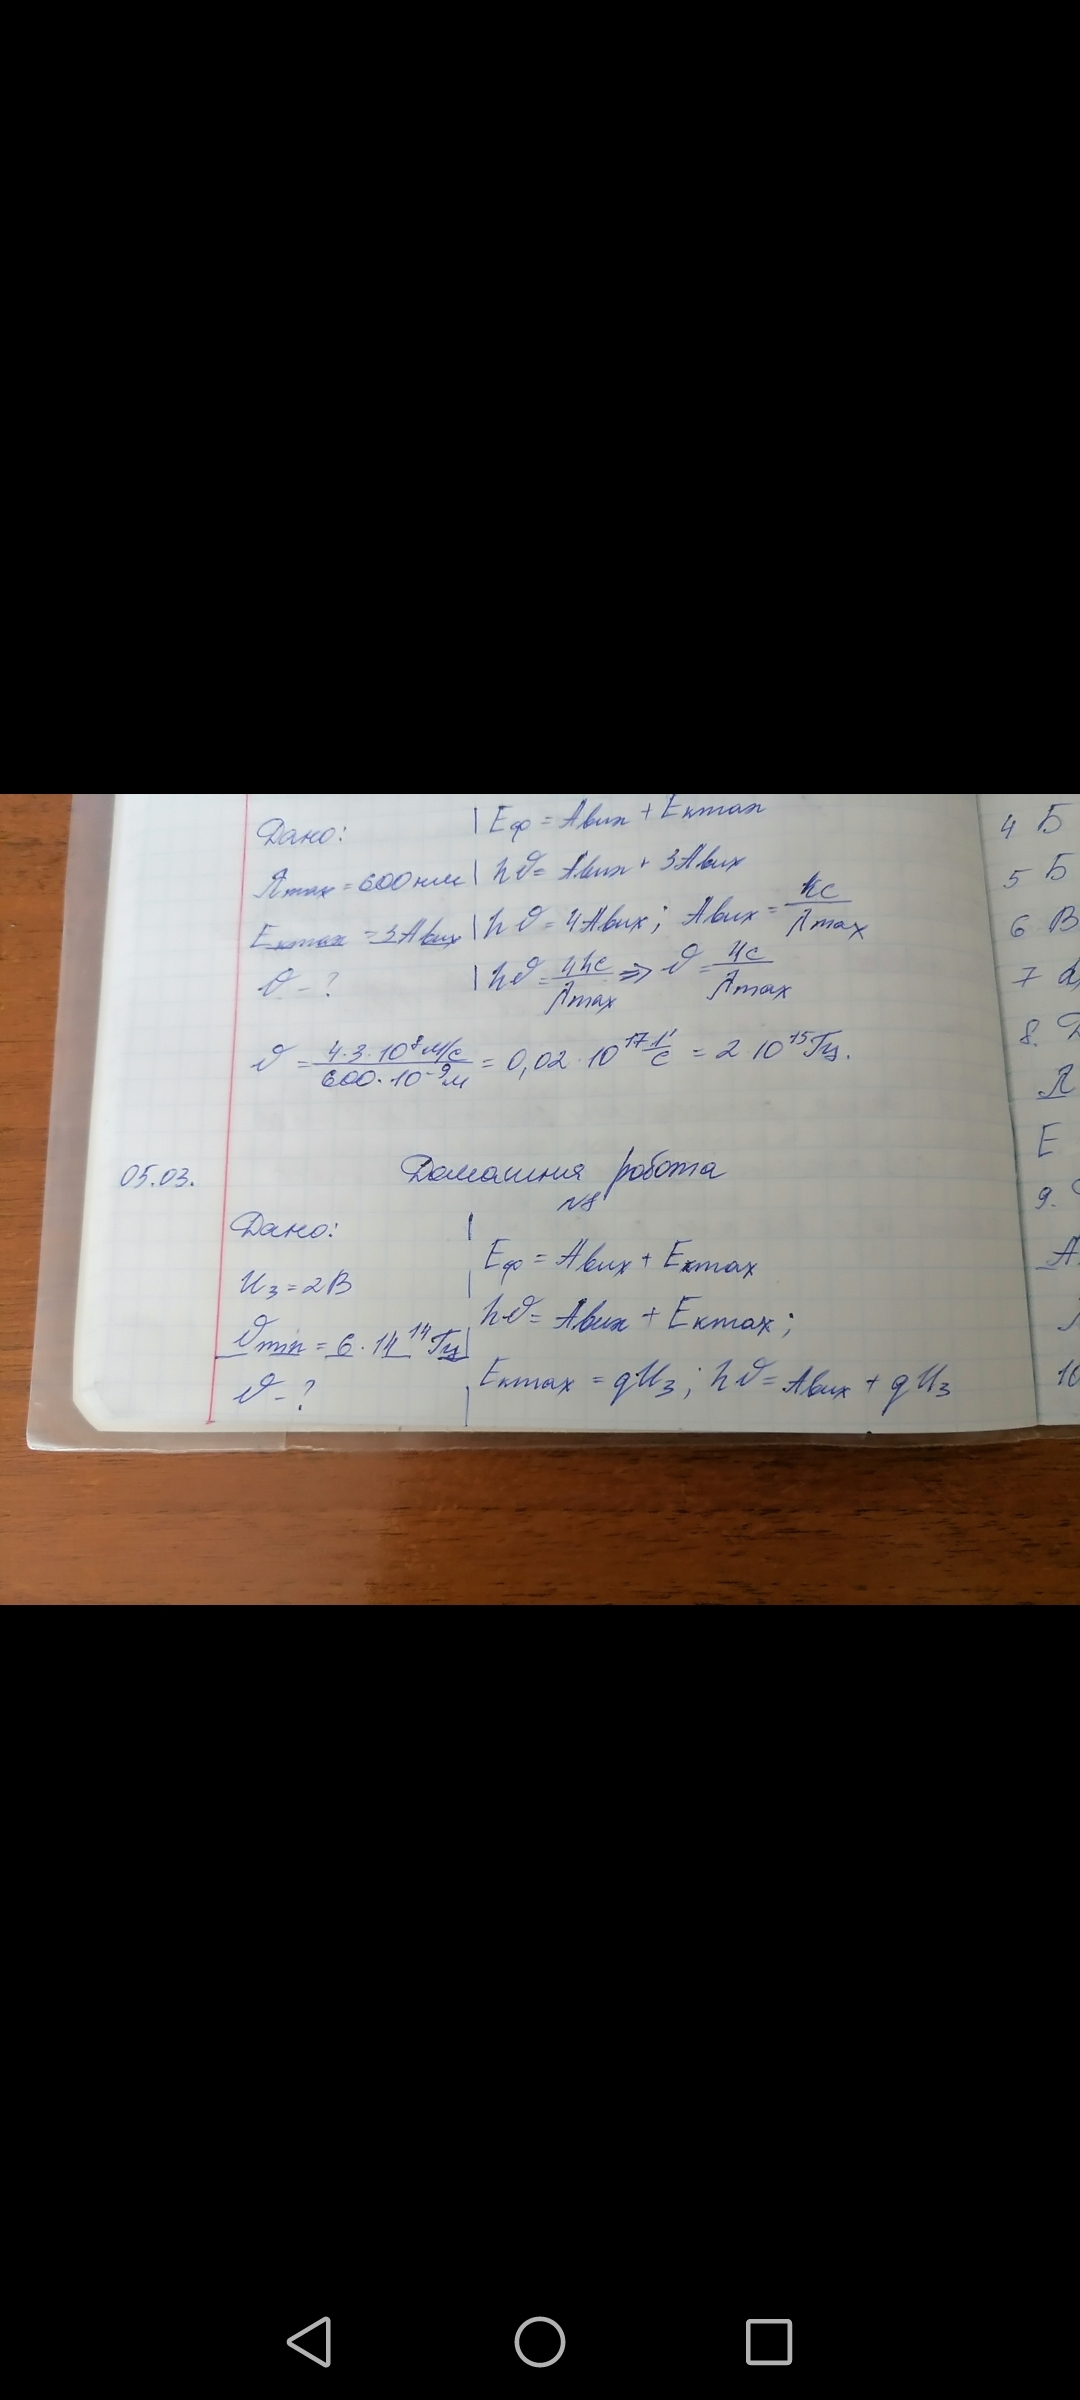 Дано:
Eф = Aвих + Eкmax
λmax = 600 нм
hϑ = Aвих + 3Aвих
Eкmax = 3Aвих
hϑ = 4Aвих; Aвих = hc/λmax
ϑ - ?
hϑ = 4hc/λmax => ϑ = 4c/λmax
ϑ = 4·3·10⁸м/с / 600·10⁻⁹м = 0,02·10¹⁷ 1/с = 2·10¹⁵Гц.
05.03.
Домашня робота
№8
Дано:
Uз = 2В
ϑmin = 6·14¹⁴Гц
ϑ - ?
Eф = Aвих + Eкmax
hϑ = Aвих + Eкmax;
Eкmax = qUз; hϑ = Aвих + qUз
4 Б
5 Б
6 В
7
8.
E
9.
A
10